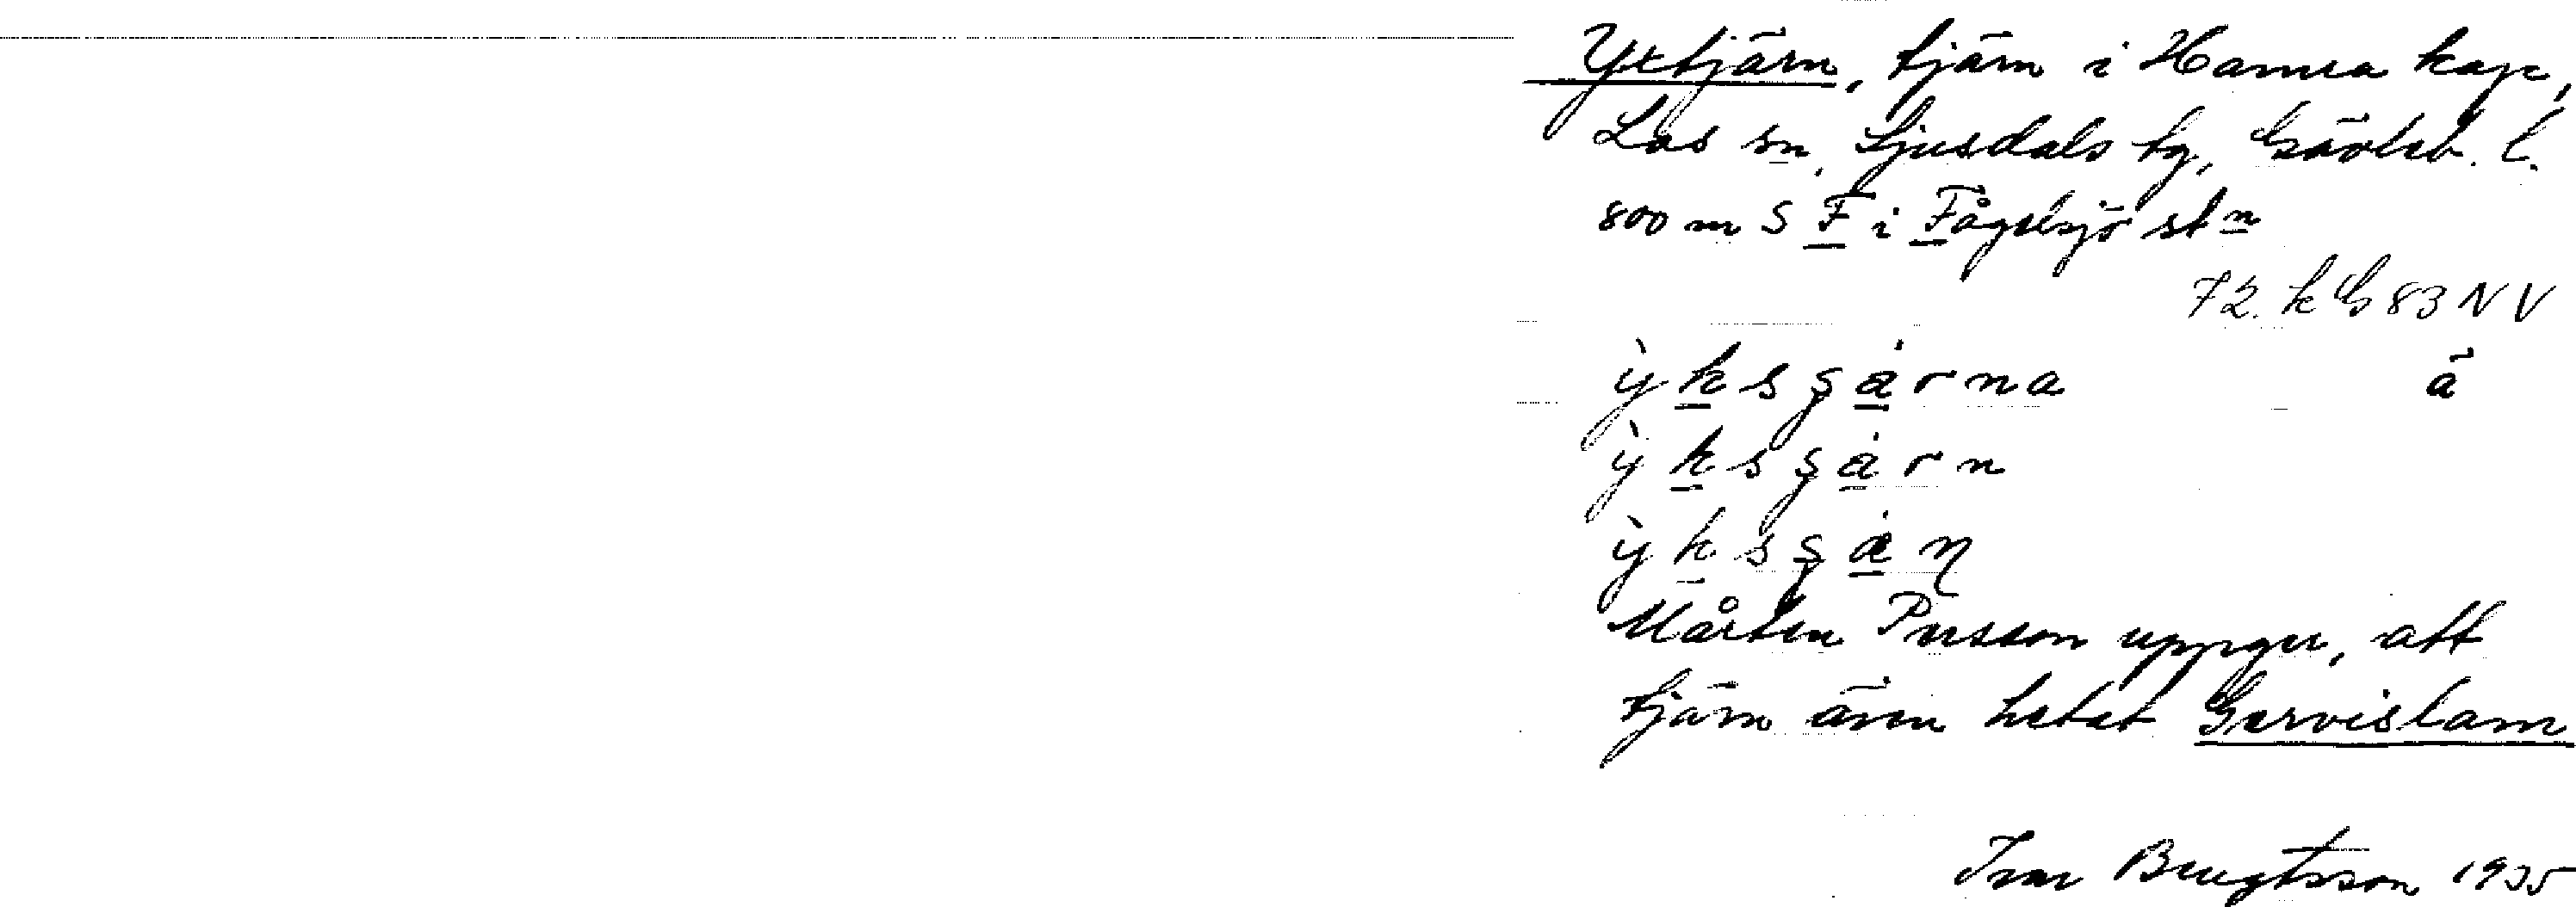 Yxtjärn, tjärn i Hamra kap,
Los sn, Ljusdals tg, Gävleb. l.
800 m S F i Fågelsjö stn
72. k G 83 NV
ỳ k s ş a r n a ä
ỳ k s ş a r n
ỳ k s ş a n
Mårten Persson uppger, att
tjärn även hetat Gervislam
Ivar Bengtsson 1935